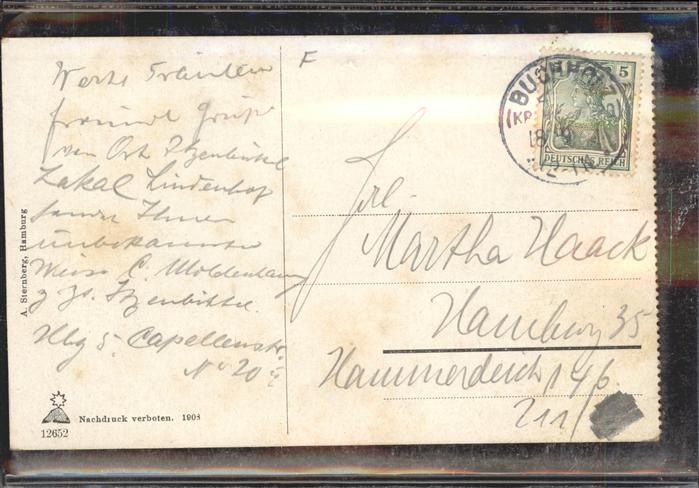 Werte Fräulein
freundl Grüße
von Ort Itzenbüttel
Lokal Lindenhof
sendet Ihnen
unbekannter
Weise C. Moldenhauer
z Zt. Itzenbüttel.
Hbg 5. Capellenstr.
No 20
F
BUCHHOLZ
5
DEUTSCHES REICH
Frl.
Martha Haack
Hamburg 35
Hammerdeich 146.
A. Sternberg, Hamburg
Nachdruck verboten. 1908
12652